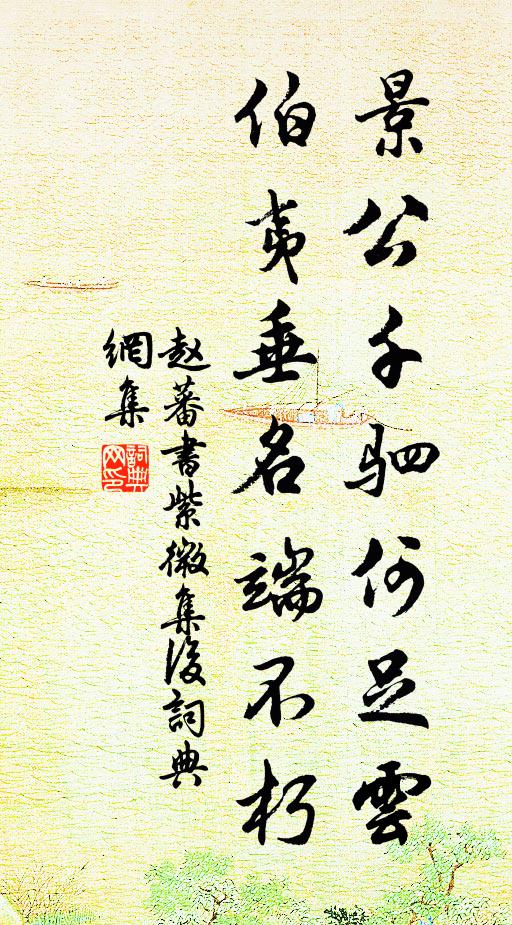 景公千驷何足雲
伯夷垂名端不朽
赵蕃書紫微集後詞典
網集
詞典
网印